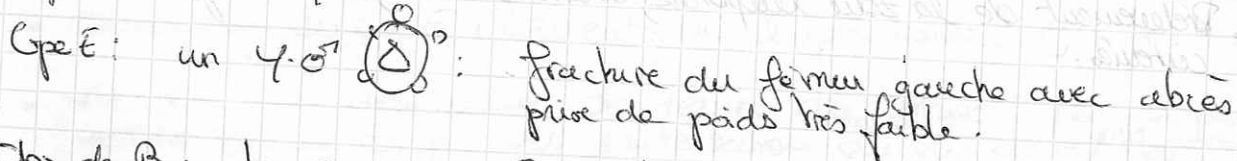 Gpe E : un 4.♂ Δ : fracture du fémur gauche avec abcès
prise de poids très faible.